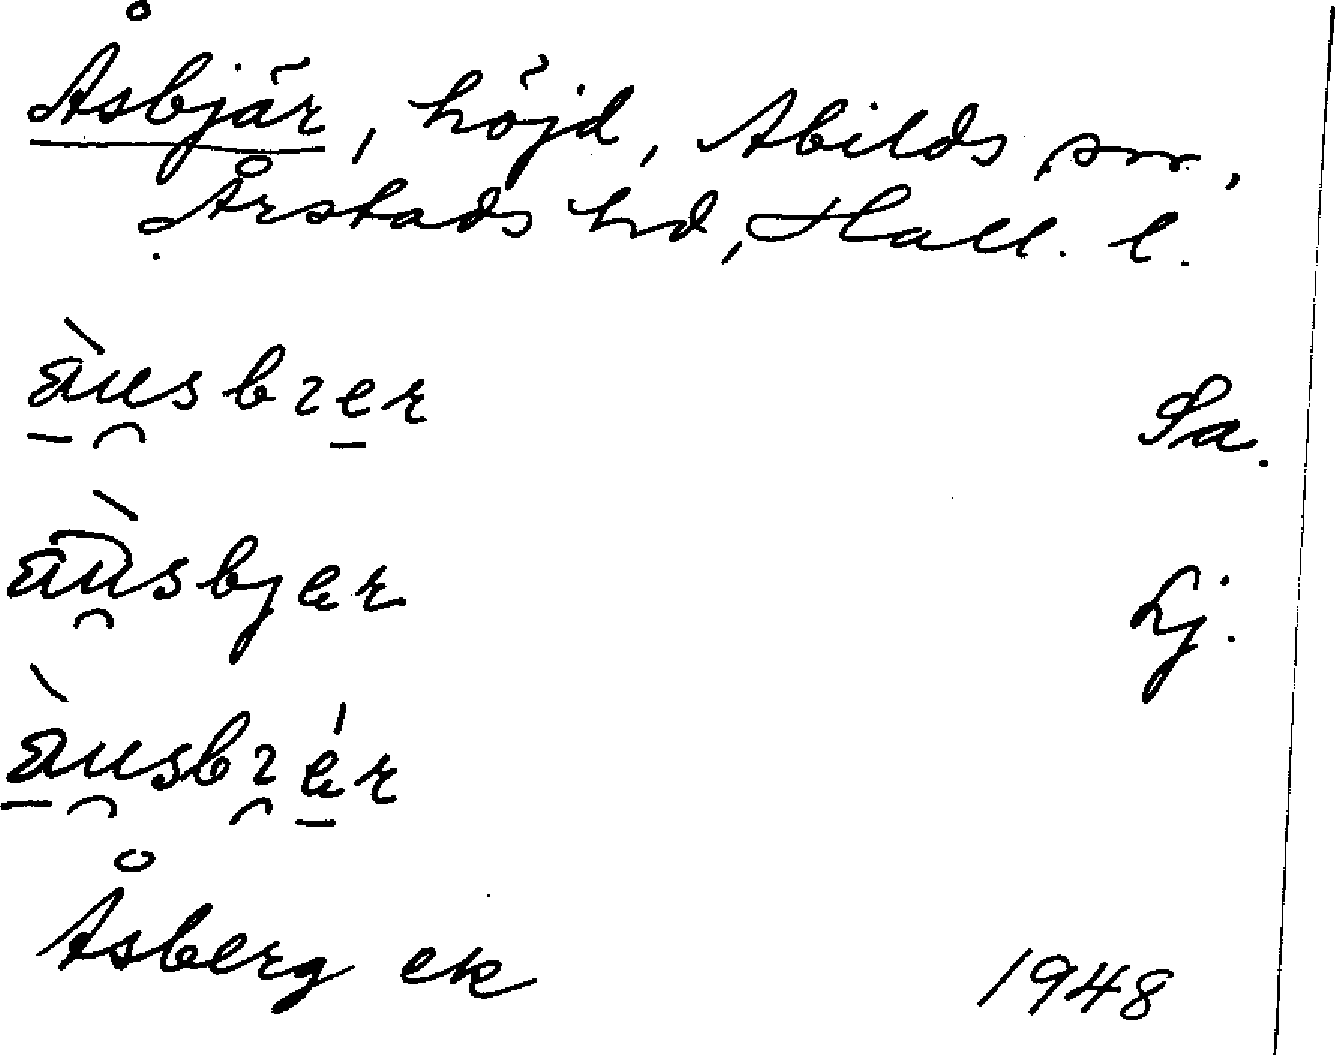 Åsbjär, höjd, Abilds sn,
Årstads hd, Hall. l.
àusbɿer Sa.
àusbjer Lj.
àusbɿér
Åsberg ek 1948